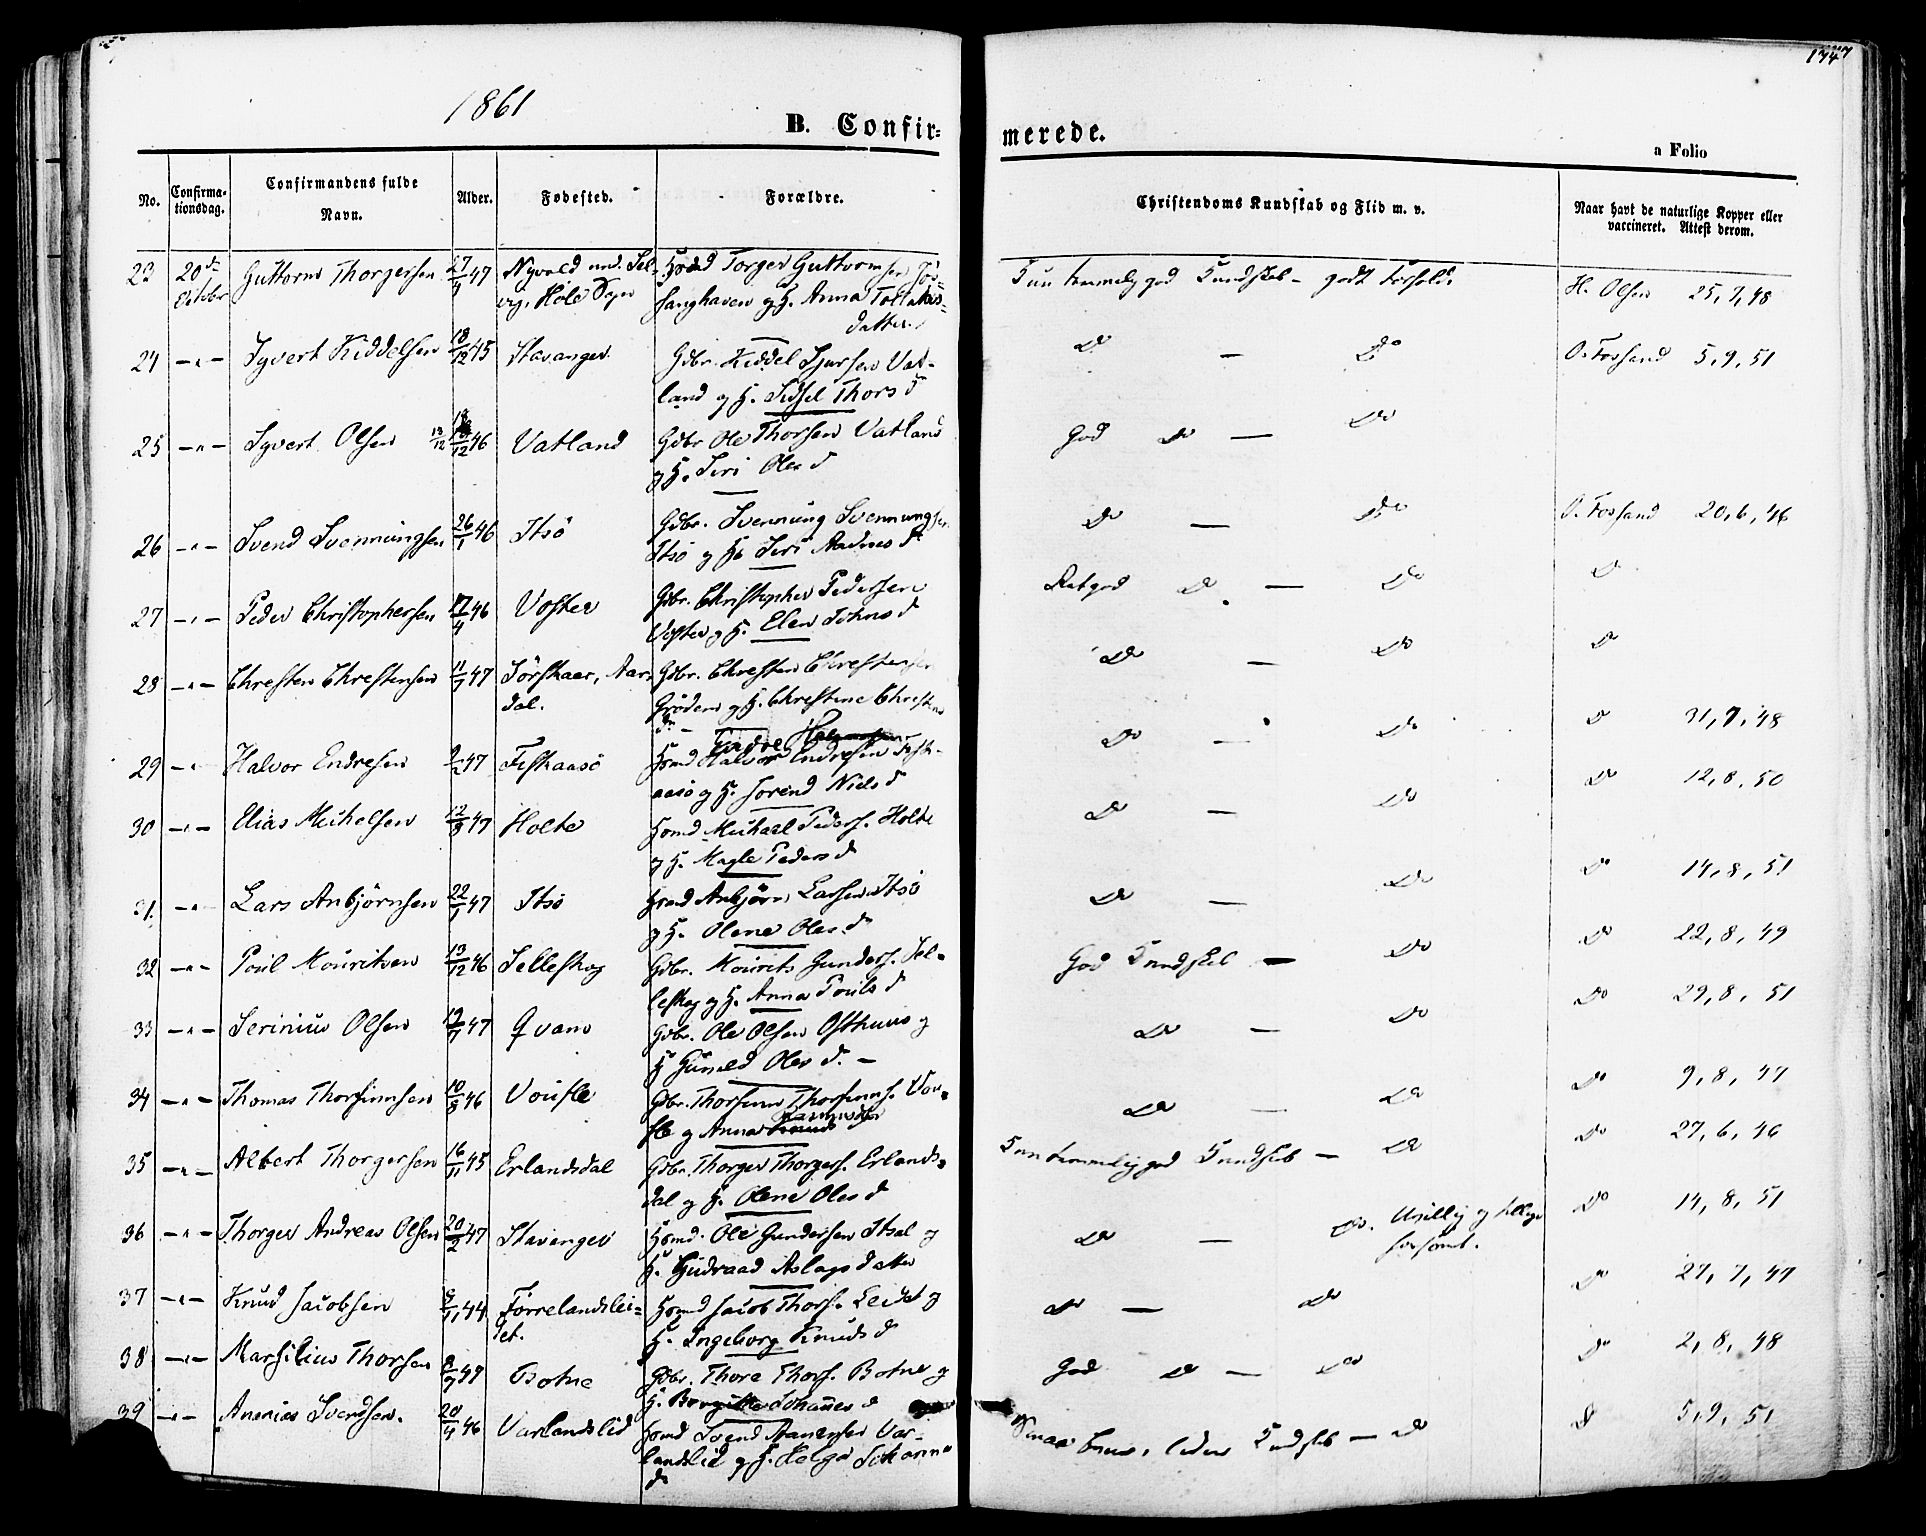 1861
B. Confirmerede.
a Folio
No. Confirmationsdag. Confirmandens fulde Navn. Alder. Fødested. Forældre. Christendoms Kundskab og Flid m. v. Naar havt de naturlige Kopper eller vaccineret. Attest derom.
23 20de Guttorm Thorgersen 27/4 47 Høle Sogn Torger Guttormsen og H. Anna datter. god Kundskab - godt Forhold. H. Olsen 25,7,48
24 -"- Syvert Kiddelsen 18/12 45 Stavanger
Gdbr. Kiddel Sjursen Vat-
land og H. Sidsel Thors d Do - Do O. Fossand 5,9,51
25 -"- Syvert Olsen 13/12 46 Vatland
Gdbr Ole Thorsen Vatland
og H. Siri Oles d God Do - Do
26 -"- Svend Svennungsen 26/1 46 Itsö
Gdbr. Svennung Svennungsen
Itsö og H. Siri Aadnes d Do - Do O. Fossand 20,6,46
27 -"- Peder Christophersen 17/4 46 Voster
Gdbr. Christopher Pedersen
Voster og H. Elen Johns d Retgod Do - Do Do
28 -"- Chresten Chrestensen 11/7 47 Sörskaar, Aar-
dal.
Gdbr. Chresten Chrestensen
Gröden og H. Chrestine Chrestens
d. - Do - Do Do
29 -"- Halvor Endresen 2 47 Fiskaasö
Hsmd Halvor Endresen Fisk-
aasö og H. Niels d Do - Do Do 31,7,48
30 -"- Elias Michelsen 12/8 47 Holte
Hsmd Michael Peders. Holte
og H. Magle Peders d Do - Do Do 12,8,50
31. -"- Lars Anbjörnsen 22/1 47 Itsö
Hsmd Anbjörn Larsen Itsö
og H. Olene Oles d. Do - Do Do 14,8,51
32 -"- Poul Mouritsen 13/12 46 Selleskog
Gdbr. Mourits Gunders. Sel-
leskog og H. Anna Pouls d God Kundskab - Do Do 22,8,49
33 -"- Serinius Olsen 19/7 47 Qvam
Gdbr. Ole Olsen Osthuus og
H Gunild Oles d. - Do - Do Do 29,8,51
34 -"- Thomas Thorsumsen 10/8 46 Voufle
Gdbr. Thorsum Thorsums. Vou-
fle og Anna Rasmusdtr Do - Do Do 9,8,47
35 -"- Albert Thorgersen 16/11 45 Erlandsdal
Gdbr. Thorger Thorgers. Erlands-
dal og H. Olene Oles d god Kundskab - Do Do 27,6,46
36 -"- Thorger Andreas Olsen 20/2 47 Stavanger
Hsmd. Ole Gundersen Itsal og
H. Gudraad Aslags datter Do - Do. Do 14,8,51
37 -"- Knud Jacobsen 44 Förrelandslei-
tet.
Hsmd Jacob Thors. Leidet og
H. Ingeborg Knuds d Do - Do Do 27,7,47
38 -"- Marsilius Thorsen 8/7 47 Botne
Gdbr. Thore Thors. Botne og
H. Borgitte Johannes d God Do - Do Do 2,8,48
39 -"- Ananias Svendsen. 20/4 46 Varlandslid
Hsmd Svend Aanensen Var-
landslid og H. Helga Johannes
d liden Kundskab - Do Do 5,9,51